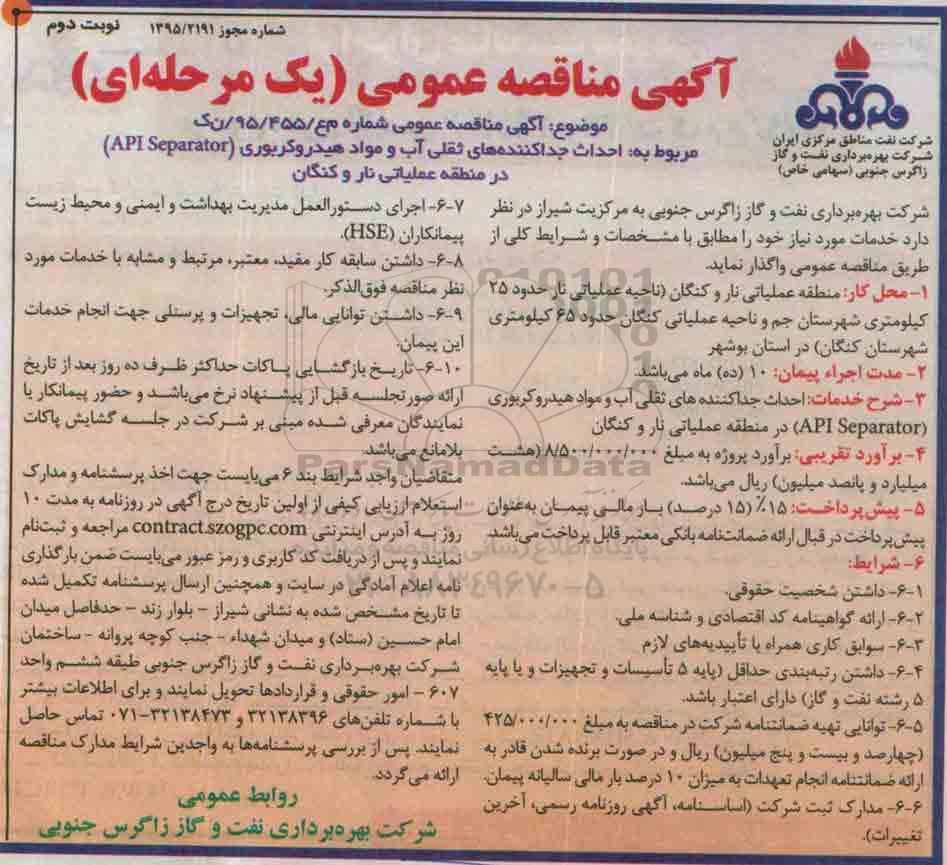 شماره مجوز ۱۳۹۵/۲۱۹۱ نوبت دوم
آگهی مناقصه عمومی (یک مرحله‌ای)
موضوع: آگهی مناقصه عمومی شماره م‌ع/۹۵/۴۵۵/ن‌ک
مربوط به: احداث جداکننده‌های ثقلی آب و مواد هیدروکربوری (API Separator)
در منطقه عملیاتی نار و کنگان
شرکت نفت مناطق مرکزی ایران
شرکت بهره‌برداری نفت و گاز
زاگرس جنوبی (سهامی خاص)
شرکت بهره‌برداری نفت و گاز زاگرس جنوبی به مرکزیت شیراز در نظر
دارد خدمات مورد نیاز خود را مطابق با مشخصات و شرایط کلی از
طریق مناقصه عمومی واگذار نماید.
۱- محل کار: منطقه عملیاتی نار و کنگان (ناحیه عملیاتی نار حدود ۲۵
کیلومتری شهرستان جم و ناحیه عملیاتی کنگان حدود ۶۵ کیلومتری
شهرستان کنگان) در استان بوشهر
۲- مدت اجراء پیمان: ۱۰ (ده) ماه می‌باشد.
۳- شرح خدمات: احداث جداکننده های ثقلی آب و مواد هیدروکربوری
(API Separator) در منطقه عملیاتی نار و کنگان
۴- برآورد تقریبی: برآورد پروژه به مبلغ ۸/۵۰۰/۰۰۰/۰۰۰ (هشت
میلیارد و پانصد میلیون) ریال می‌باشد.
۵- پیش‌پرداخت: ۱۵٪ (۱۵ درصد) بار مالی پیمان به‌عنوان
پیش‌پرداخت در قبال ارائه ضمانت‌نامه بانکی معتبر قابل پرداخت می‌باشد.
۶- شرایط:
۶-۱- داشتن شخصیت حقوقی.
۶-۲- ارائه گواهینامه کد اقتصادی و شناسه ملی.
۶-۳- سوابق کاری همراه با تأییدیه‌های لازم
۶-۴- داشتن رتبه‌بندی حداقل (پایه ۵ تأسیسات و تجهیزات و یا پایه
۵ رشته نفت و گاز) دارای اعتبار باشد.
۶-۵- توانایی تهیه ضمانتنامه شرکت در مناقصه به مبلغ ۴۲۵/۰۰۰/۰۰۰
(چهارصد و بیست و پنج میلیون) ریال و در صورت برنده شدن قادر به
ارائه ضمانتنامه انجام تعهدات به میزان ۱۰ درصد بار مالی سالیانه پیمان.
۶-۶- مدارک ثبت شرکت (اساسنامه، آگهی روزنامه رسمی، آخرین
تغییرات).
۶-۷- اجرای دستورالعمل مدیریت بهداشت و ایمنی و محیط زیست
پیمانکاران (HSE).
۶-۸- داشتن سابقه کار مفید، معتبر، مرتبط و مشابه با خدمات مورد
نظر مناقصه فوق‌الذکر.
۶-۹- داشتن توانایی مالی، تجهیزات و پرسنلی جهت انجام خدمات
این پیمان.
۶-۱۰- تاریخ بازگشایی پاکات حداکثر ظرف ده روز بعد از تاریخ
ارائه صورتجلسه قبل از پیشنهاد نرخ می‌باشد و حضور پیمانکار یا
نمایندگان معرفی شده مبنی بر شرکت در جلسه گشایش پاکات
بلامانع می‌باشد.
متقاضیان واجد شرایط بند ۶ می‌بایست جهت اخذ پرسشنامه و مدارک
استعلام ارزیابی کیفی از اولین تاریخ درج آگهی در روزنامه به مدت ۱۰
روز به آدرس اینترنتی contract.szogpc.com مراجعه و ثبت‌نام
نمایند و پس از دریافت کد کاربری و رمز عبور می‌بایست ضمن بارگذاری
نامه اعلام آمادگی در سایت و همچنین ارسال پرسشنامه تکمیل شده
تا تاریخ مشخص شده به نشانی شیراز - بلوار زند - حدفاصل میدان
امام حسین (ستاد) و میدان شهداء - جنب کوچه پروانه - ساختمان
شرکت بهره‌برداری نفت و گاز زاگرس جنوبی طبقه ششم واحد
۶۰۷ - امور حقوقی و قراردادها تحویل نمایند و برای اطلاعات بیشتر
با شماره تلفن‌های ۳۲۱۳۸۳۹۶ و ۳۲۱۳۸۴۷۳-۰۷۱ تماس حاصل
نمایند. پس از بررسی پرسشنامه‌ها به واجدین شرایط مدارک مناقصه
ارائه می‌گردد.
روابط عمومی
شرکت بهره‌برداری نفت و گاز زاگرس جنوبی
ParsNamadData
پایگاه اطلاع رسانی مناقصه و مزایده